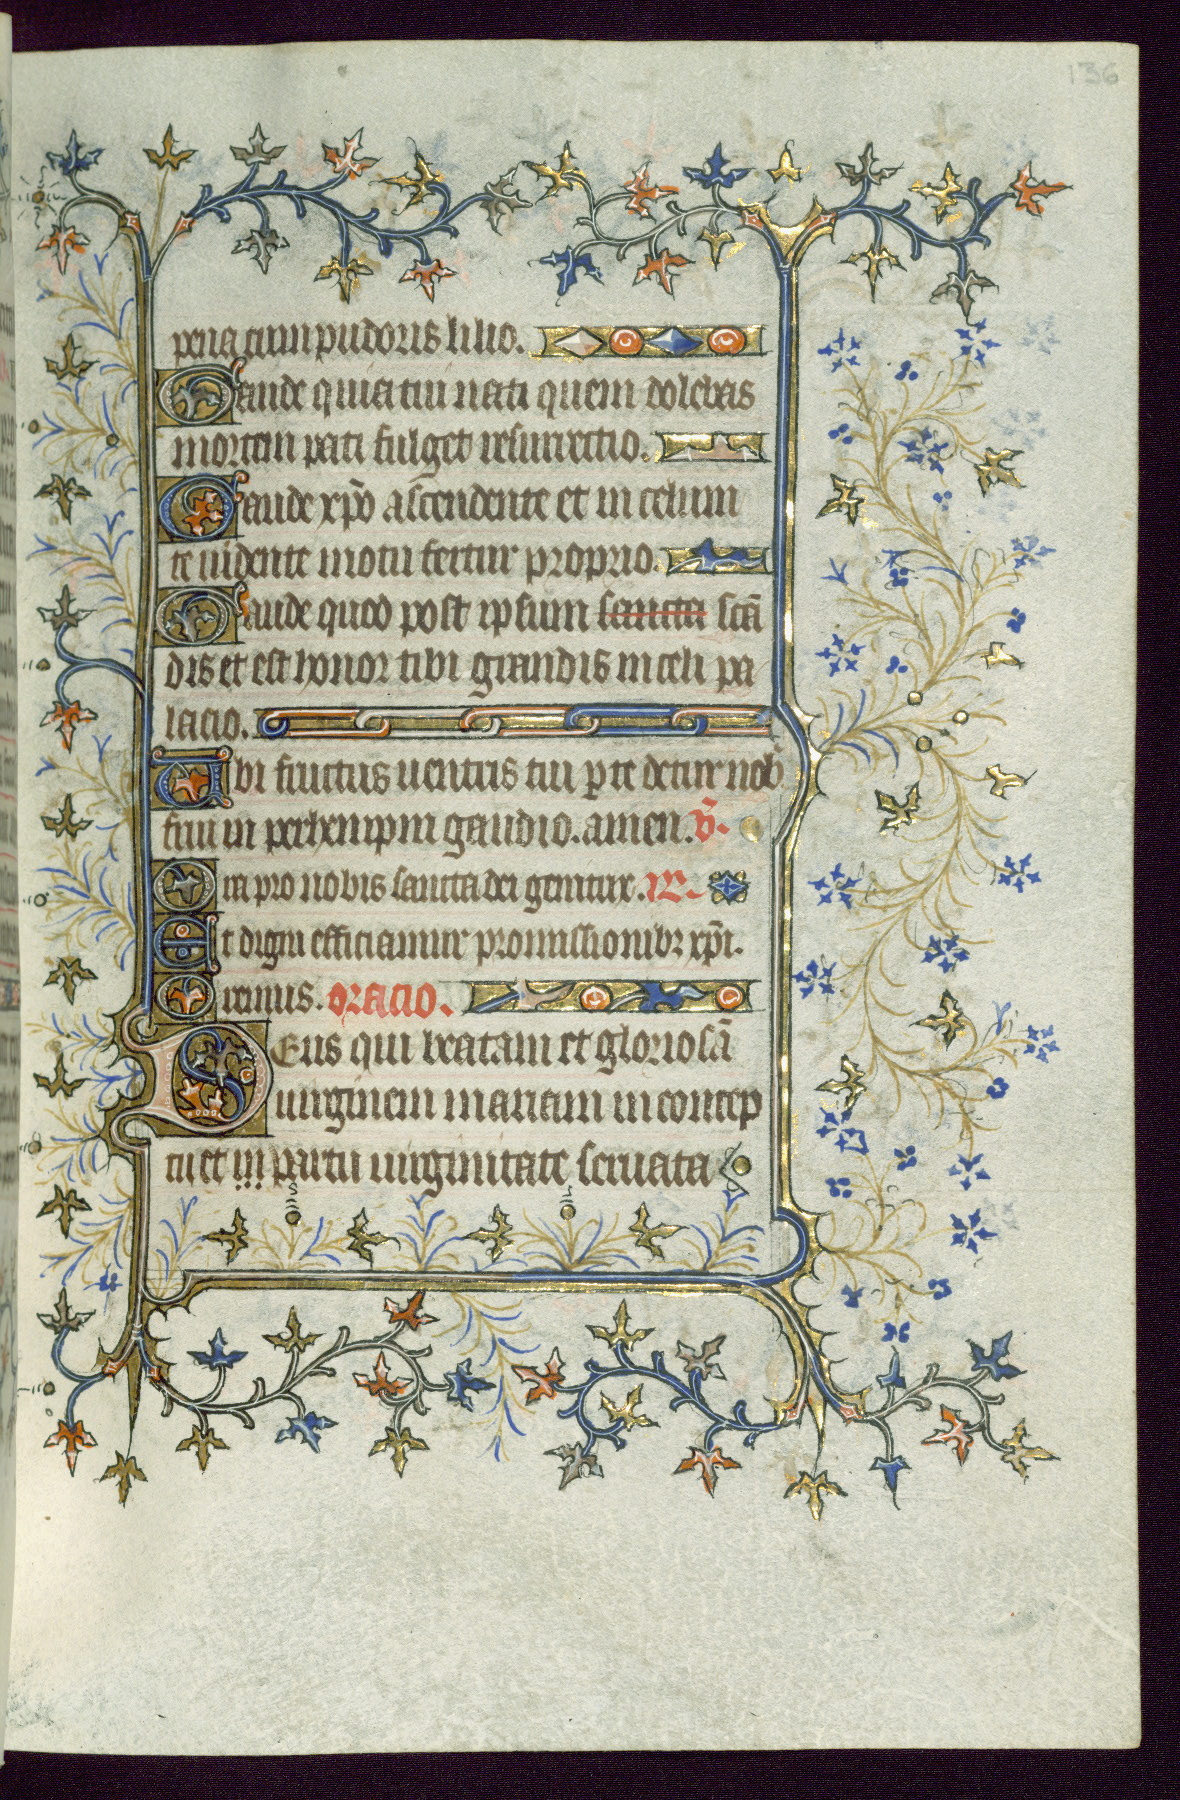 136
pena cum pudoris lilio.
Gaude quia tui nati quem dolebas
mortem pati fulget resurrectio.
Gaude xpō ascendente et in celum
te uidente motu fertur proprio.
Gaude quod post ipsum sancta scā
dis et est honor tibi grandis in celi pa
lacio.
Ubi fructus uentris tui p te detur nob
frui in perhempni gaudio. amen. v̄.
Ora pro nobis sancta dei genitrix. R
Et digni efficiamur promissionibꝫ xp̄i.
Oremus. oracio.
Deus qui beatam et gloriosā
uirginem mariam in concep
tu et in partu uirginitate seruata